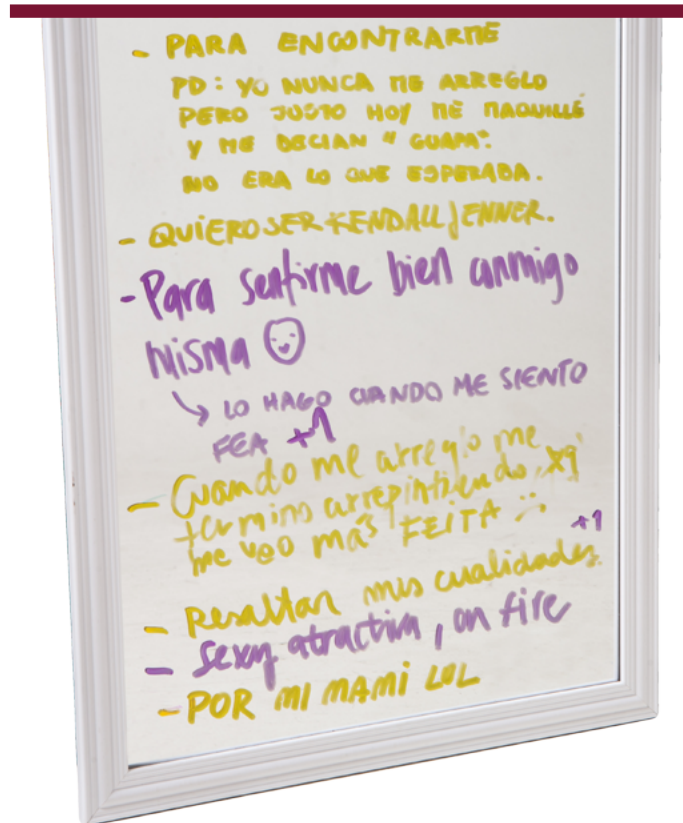 - PARA ENCONTRARME
PD: YO NUNCA ME ARREGLO
PERO JUSTO HOY ME MAQUILLÉ
Y ME DECIAN "GUAPA".
NO ERA LO QUE ESPERABA.
- QUIERO SER KENDALL JENNER.
- Para sentirme bien conmigo
misma
↳ LO HAGO CUANDO ME SIENTO
FEA +1
- Cuando me arreglo me
termino arrepintiendo, xq'
me veo más FEITA :(
+1
- Resaltar mis cualidades
- Sexy, atractiva, on fire
- POR MI MAMI LOL